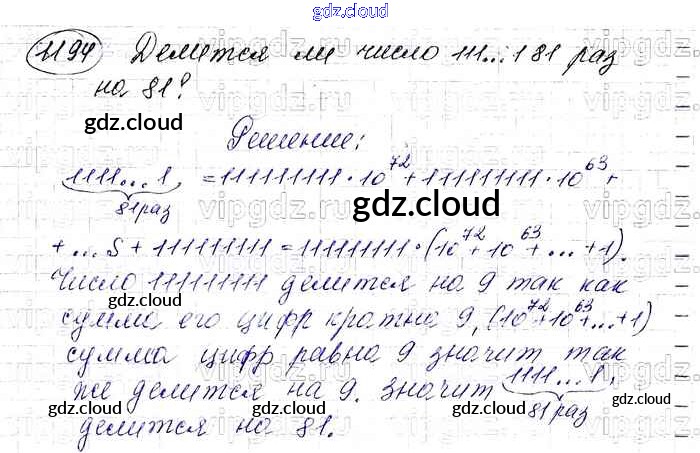 gdz.cloud
1194 Делится ли число 111...1 81 раз
на 81?
gdz.cloud
Решение:
1111...1 = 111111111·10^72 + 111111111·10^63 +
81 раз
gdz.cloud
+ ...S + 111111111 = 111111111·(10^72 + 10^63 + ... + 1).
Число 111111111 делится на 9 так как
gdz.cloud
сумма его цифр кратна 9, (10^72+10^63+...+1)
сумма цифр равна 9 значит так
gdz.cloud
же делится на 9. значит 1111...1,
81 раз
gdz.cloud gdz.cloud
делится на 81.
gdz.cloud